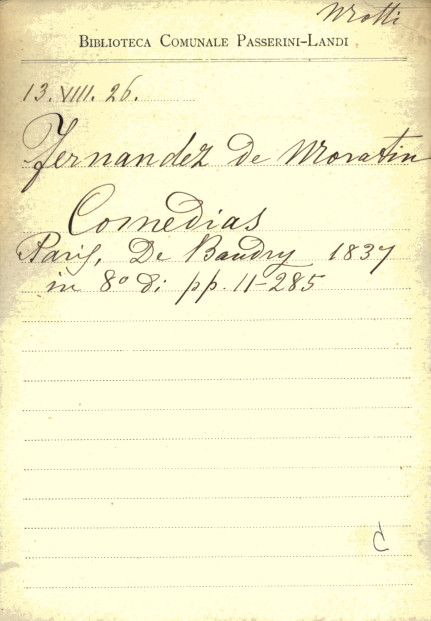 BIBLIOTECA COMUNALE PASSERINI-LANDI
13. VIII. 26.
Fernandez de Moratin
Comedias
Paris, De Baudry 1837
in 8° di pp. 11-285